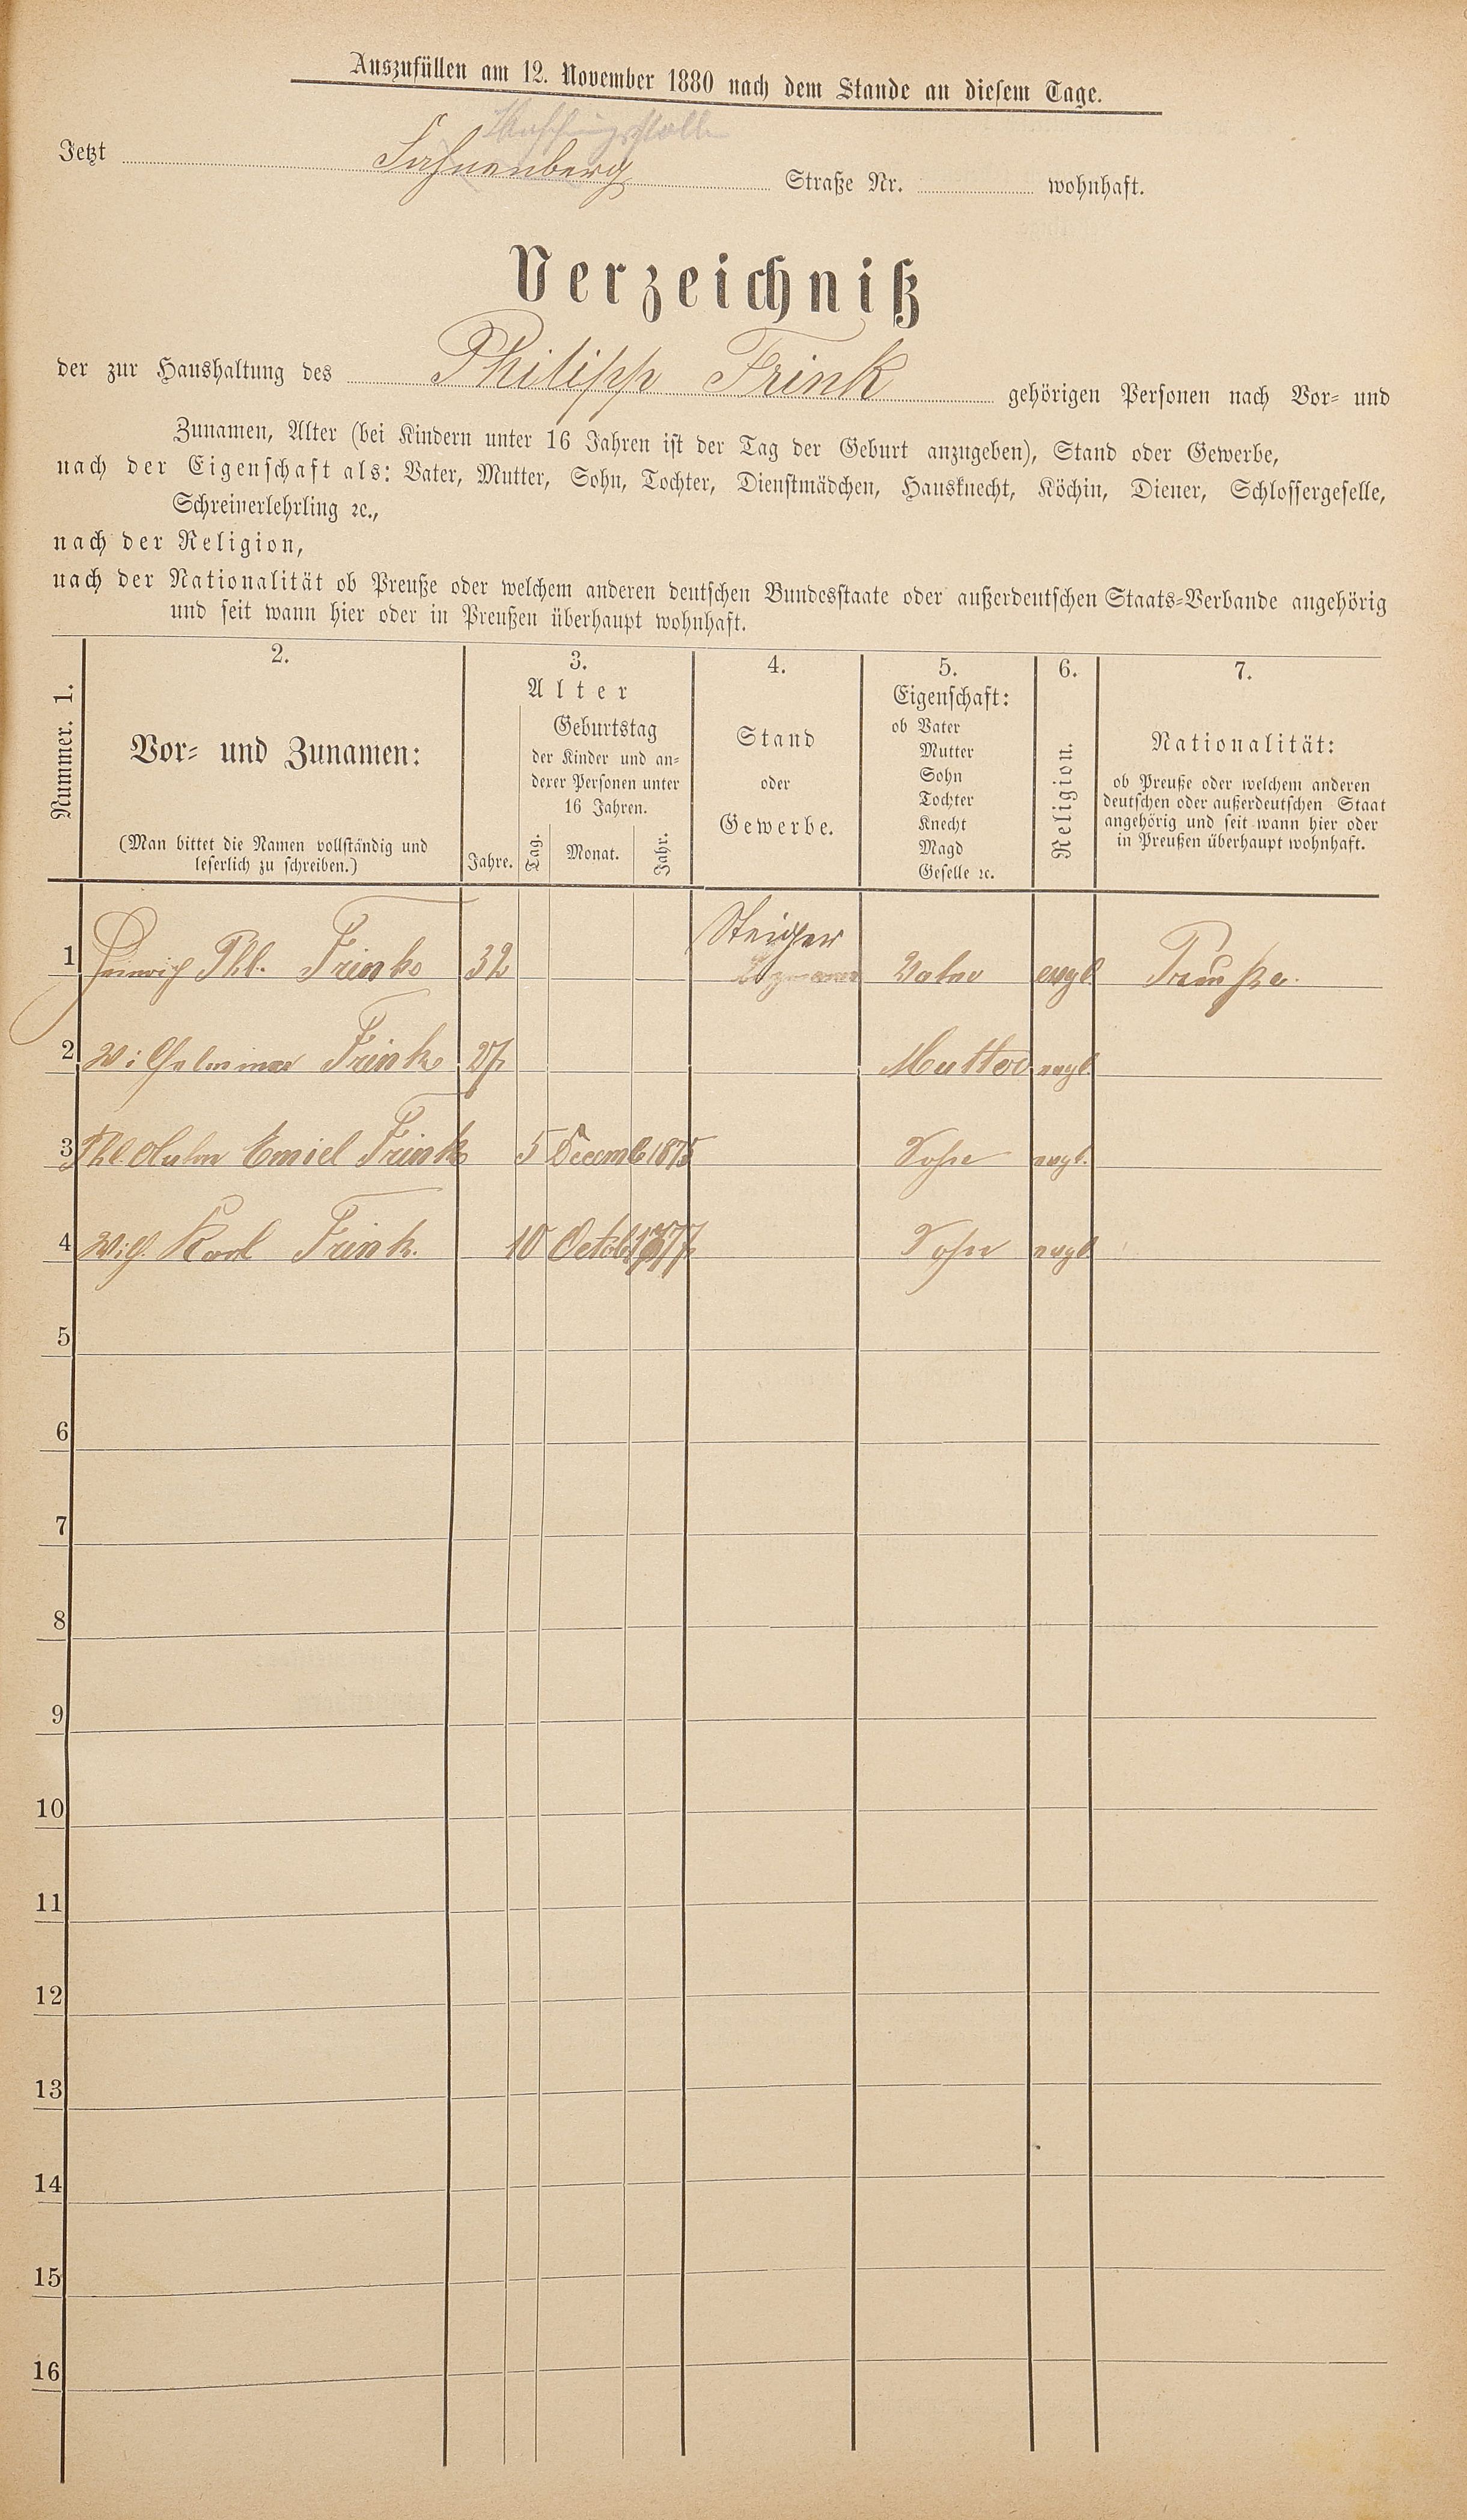 Auszufüllen am 12. November 1880 nach dem Stande an diesem Tage.
Jetzt Straße Nr. wohnhaft.
Verzeichniß
der zur Haushaltung des Philipp Frink gehörigen Personen nach Vor- und
Zunamen, Alter (bei Kindern unter 16 Jahren ist der Tag der Geburt anzugeben), Stand oder Gewerbe,
nach der Eigenschaft als: Vater, Mutter, Sohn, Tochter, Dienstmädchen, Hausknecht, Köchin, Diener, Schlossergeselle,
Schreinerlehrling ꝛc.,
nach der Religion,
nach der Nationalität ob Preuße oder welchem anderen deutschen Bundesstaate oder außerdeutschen Staats-Verbande angehörig
und seit wann hier oder in Preußen überhaupt wohnhaft.
Nummer. 1.
2.
Vor- und Zunamen:
(Man bittet die Namen vollständig und
leserlich zu schreiben.)
3.
Alter
Jahre.
Geburtstag
der Kinder und an-
derer Personen unter
16 Jahren.
Tag. Monat. Jahr.
4.
Stand
oder
Gewerbe.
5.
Eigenschaft:
ob Vater
Mutter
Sohn
Tochter
Knecht
Magd
Geselle ꝛc.
6.
Religion.
7.
Nationalität:
ob Preuße oder welchem anderen
deutschen oder außerdeutschen Staat
angehörig und seit wann hier oder
in Preußen überhaupt wohnhaft.
Steiger
1 Heinrich Phl. Frink 32 Vater evgl Preuße.
2 Wilhelmine Frink 27 Mutter evgl.
3 Phl. Emiel Frink 5 Decemb 1875 Sohn evgl.
4 Wilh. Karl Frink. 10 Octob 1877 Sohn evgl
5
6
7
8
9
10
11
12
13
14
15
16